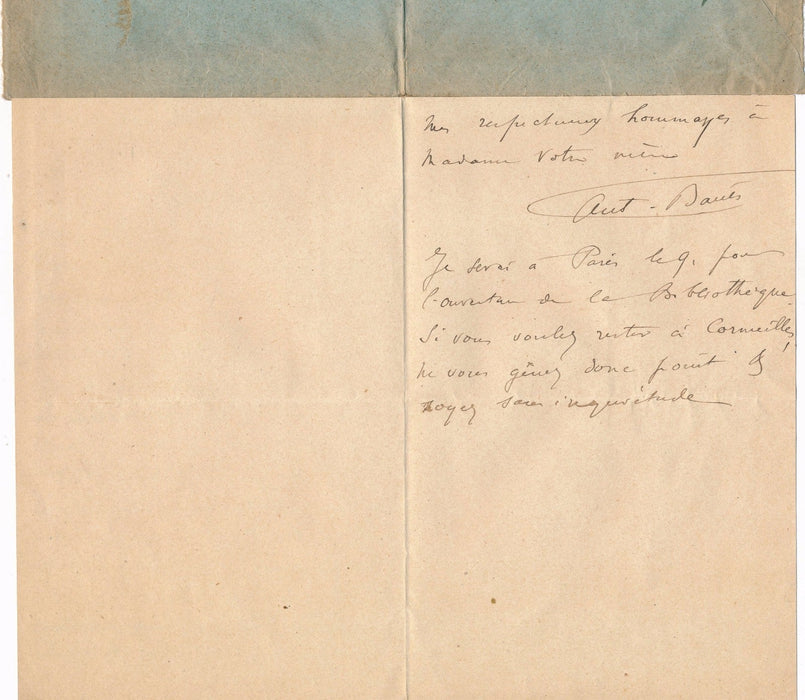 Mes respectueux hommages à
Madame votre mère
Ant. Banès
Je serai à Paris le 9, pour
l'ouverture de la Bibliothèque.
Si vous voulez rester à Cormeilles,
ne vous gênez donc point ! &
soyez sans inquiétude